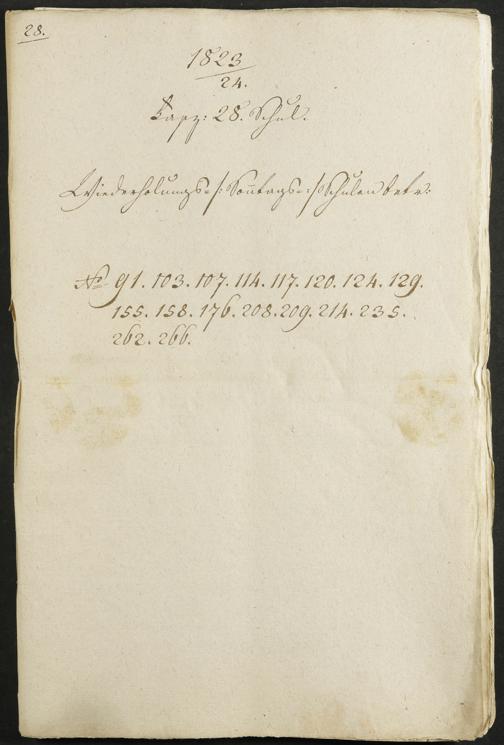 28.
1823
24.
Fasz: 28. Schul.
Wiederholungs-/: Sontags-:/Schulen betr:
No 91. 103. 107. 114. 117. 120. 124. 129.
155. 158. 176. 208. 209. 214. 235.
262. 266.